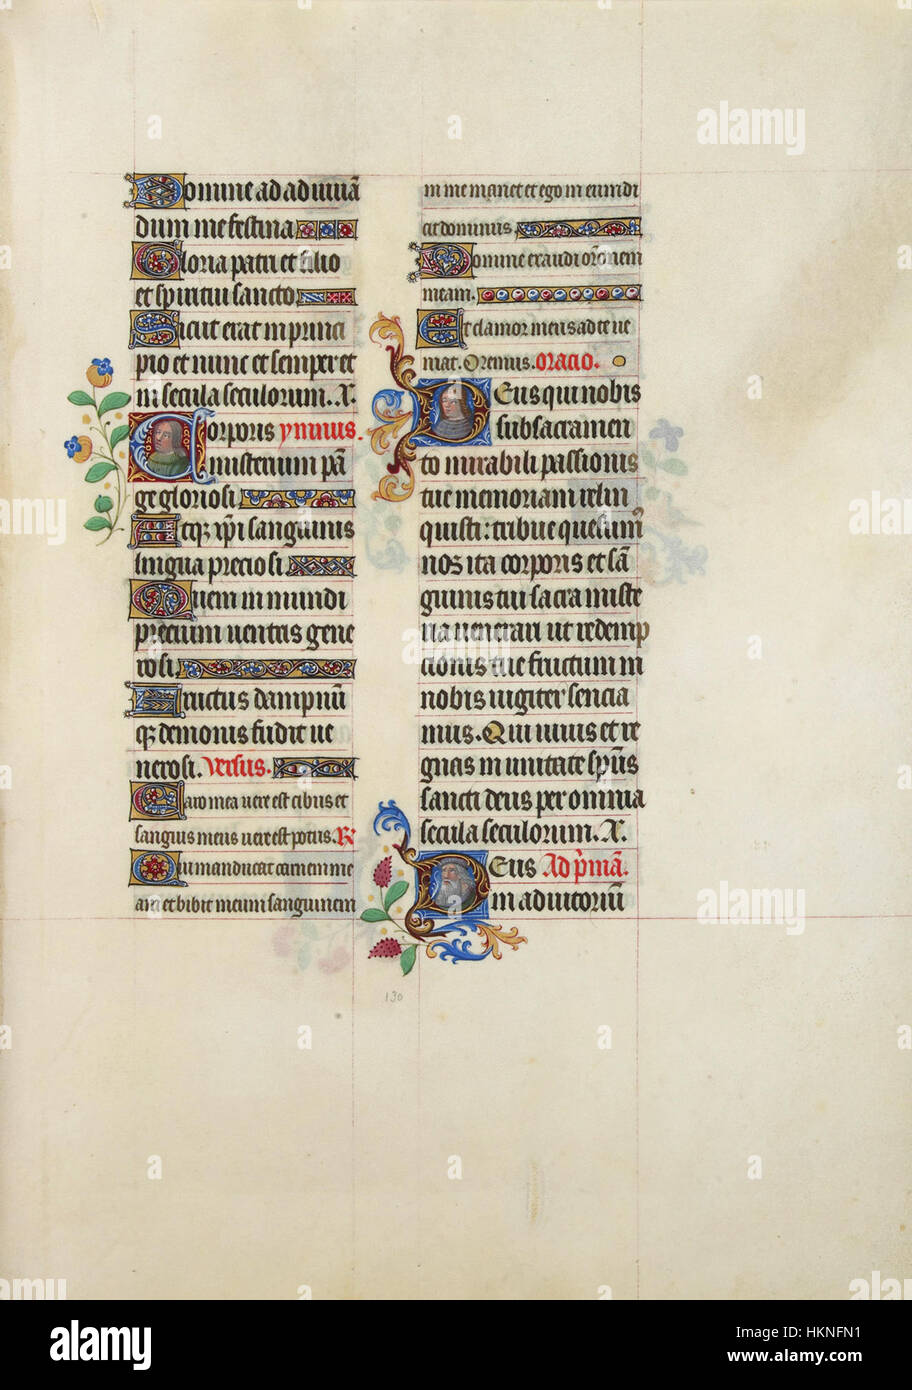 Domine ad adiuuã
dum me festina
Gloria patri et filio
et spiritui sancto
Sicut erat in princi
pio et nunc et semper et
in secula seculorum. A.
Corporis ymnus.
misterium pã
ge gloriosi
Atq; xp̃i sanguinis
lingua preciosi
Quem in mundi
precium uentris gene
rosi
Fructus dampnũ
q; demonis fudit ue
nerosi. Versus.
Caro mea uere est cibus et
sanguis meus uere est potus. R
Qui manducat carnem me
am et bibit meum sanguinem
in me manet et ego in eum di
cit dominus
Domine exaudi orõnem
meam.
Et clamor meus ad te ue
niat. Oremus. Oracio.
Deus qui nobis
sub sacramen
to mirabili passionis
tue memoriam relin
quisti: tribue quesum9
nos ita corporis et sã
guinis tui sacra miste
ria uenerari ut redemp
cionis tue fructum in
nobis iugiter sencia
mus. Qui uiuis et re
gnas in unitate sp̃us
sancti deus per omnia
secula seculorum. A.
Deus Ad p̃imã.
in adiutoriũ
130
alamy
a
alamy
Image ID: HKNFN1
www.alamy.com